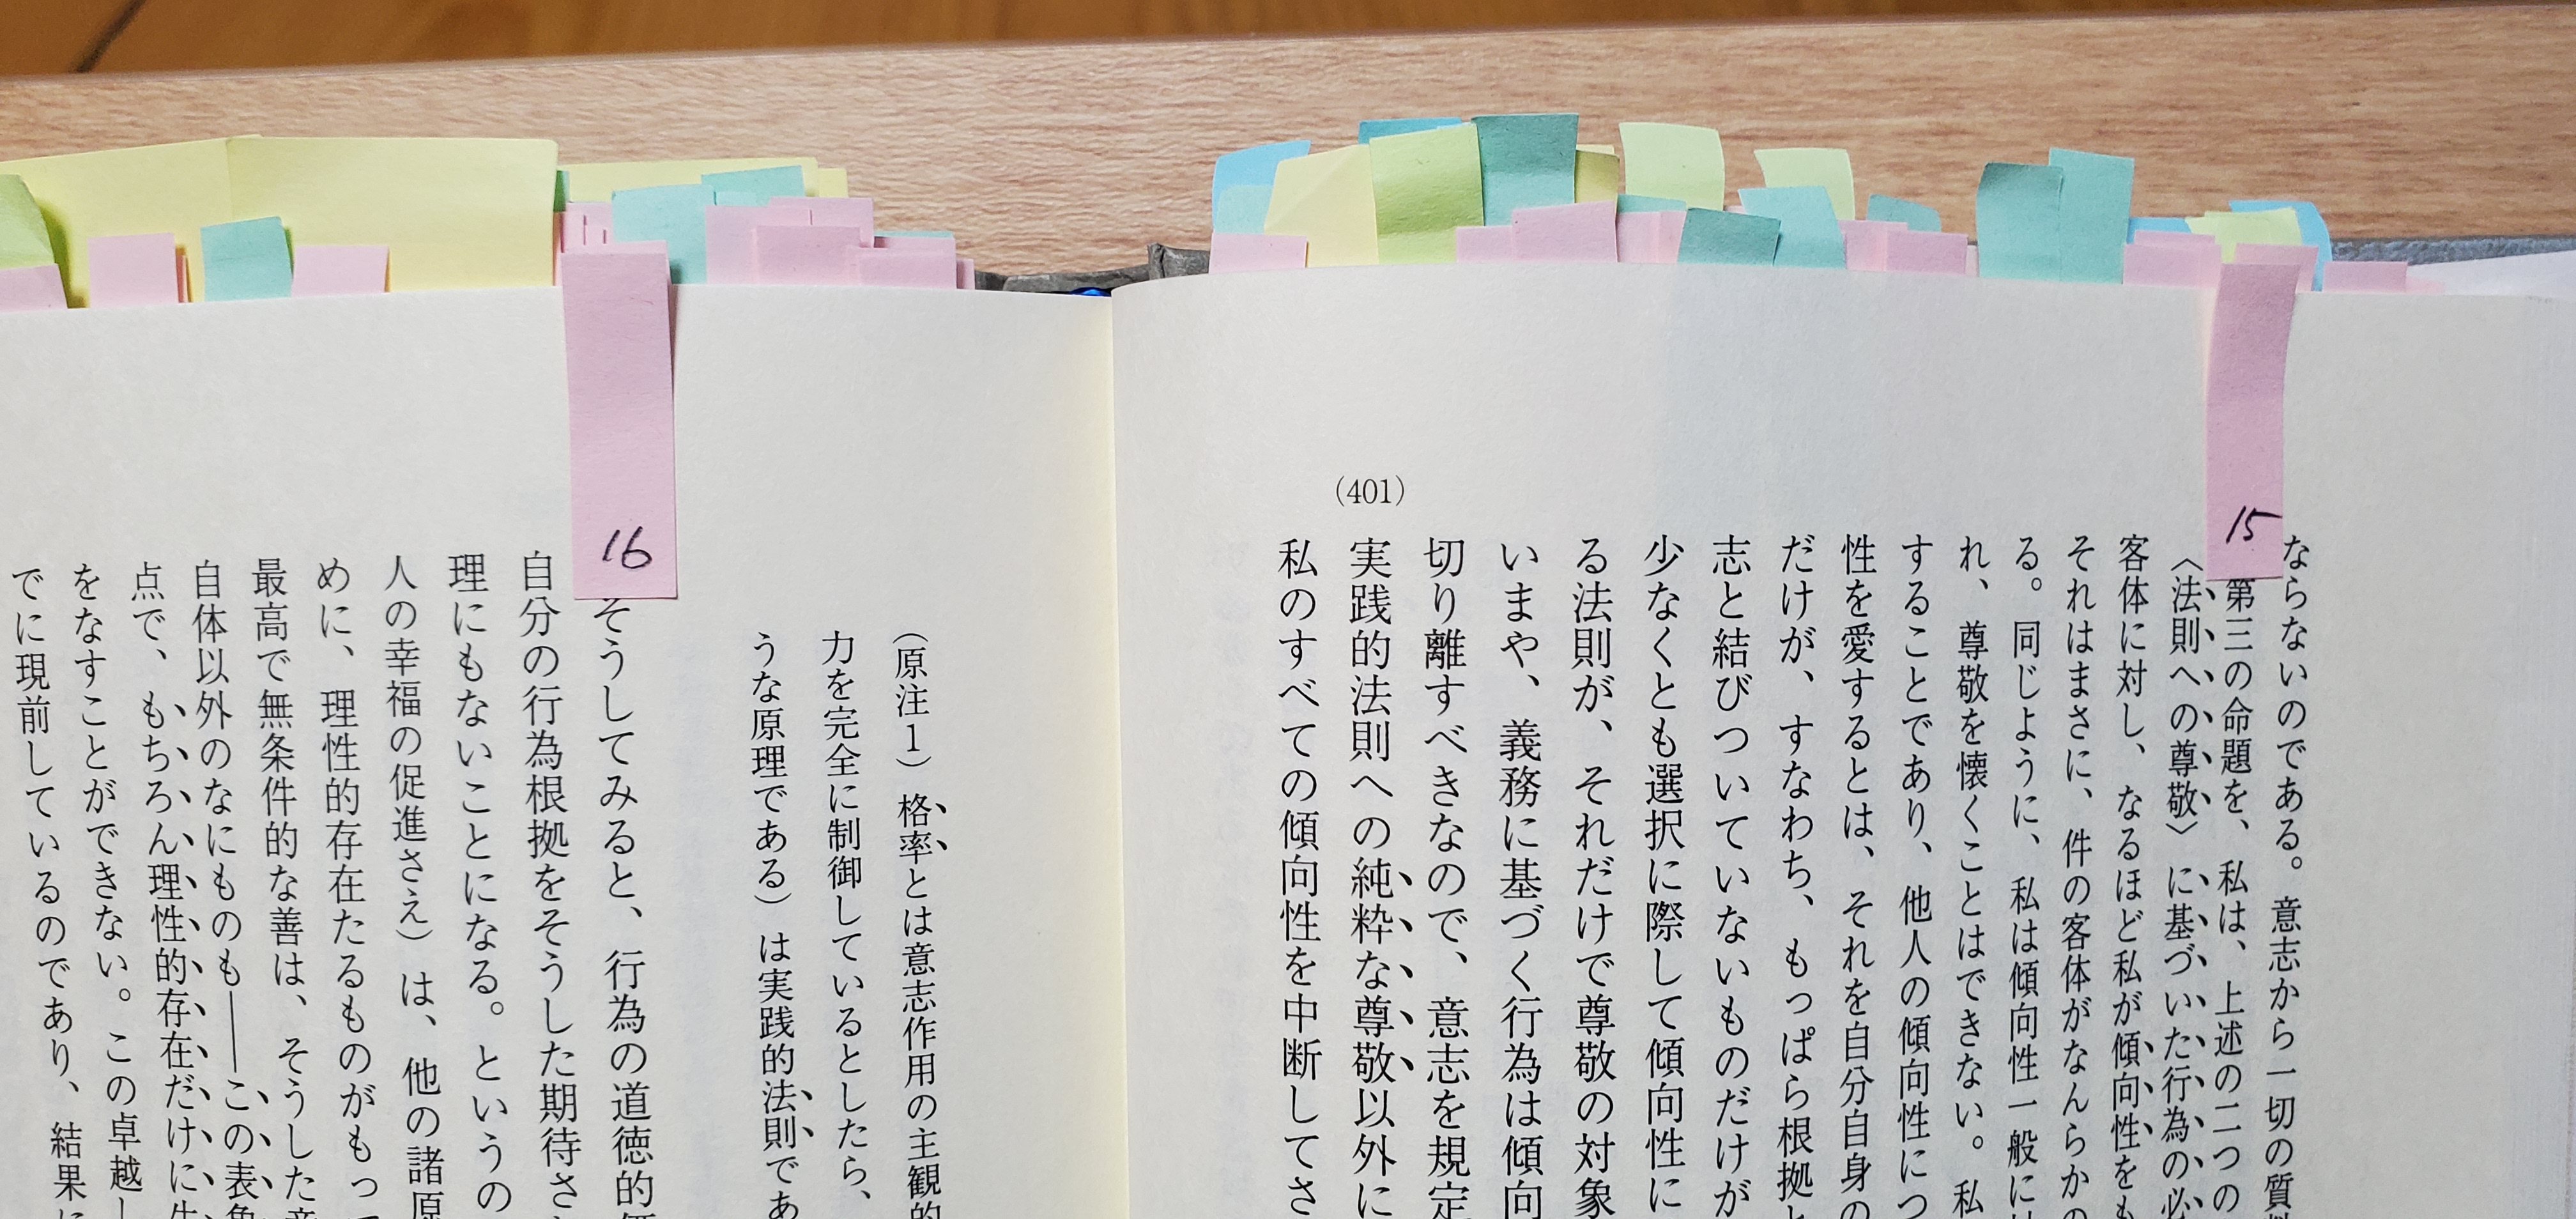 15
ならないのである。意志から一切の質
第三の命題を、私は、上述の二つの
〈法則への尊敬〉に基づいた行為の必
客体に対し、なるほど私が傾向性をも
それはまさに、件の客体がなんらかの
る。同じように、私は傾向性一般には
れ、尊敬を懐くことはできない。私
することであり、他人の傾向性につ
性を愛するとは、それを自分自身の
だけが、すなわち、もっぱら根拠と
志と結びついていないものだけが
少なくとも選択に際して傾向性に
る法則が、それだけで尊敬の対象
いまや、義務に基づく行為は傾向
切り離すべきなので、意志を規定
(401)
実践的法則への純粋な尊敬以外に
私のすべての傾向性を中断してさ
(原注1)格率とは意志作用の主観的
力を完全に制御しているとしたら、
うな原理である)は実践的法則であ
16
そうしてみると、行為の道徳的価
自分の行為根拠をそうした期待さ
理にもないことになる。というの
人の幸福の促進さえ)は、他の諸原
めに、理性的存在たるものがもっ
最高で無条件的な善は、そうした意
自体以外のなにものも――この表象
点で、もちろん理性的存在だけに生
をなすことができない。この卓越し
でに現前しているのであり、結果に